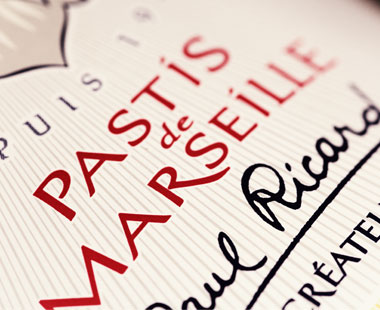 PUIS 19
PASTiS
de
MARSEiLLE
Paul Ricard
CRÉATEU